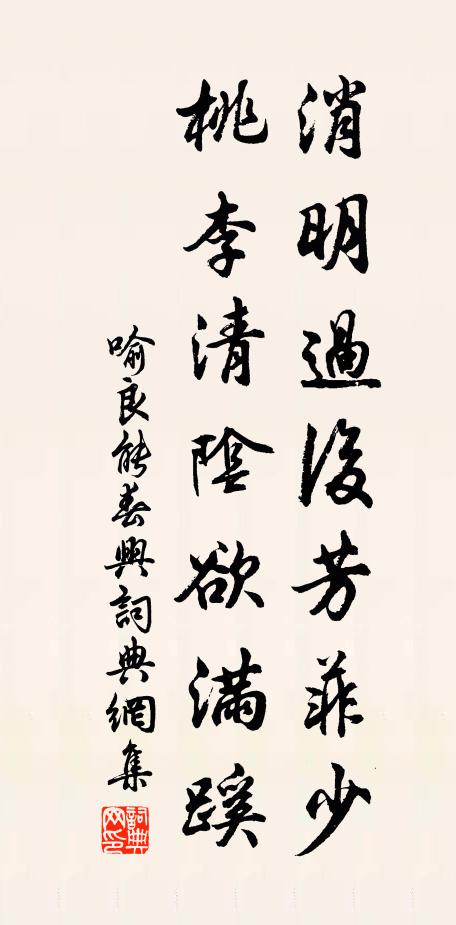 消明過後芳菲少
桃李清陰欲滿蹊
喻良能春興詞典網集
詞典網印